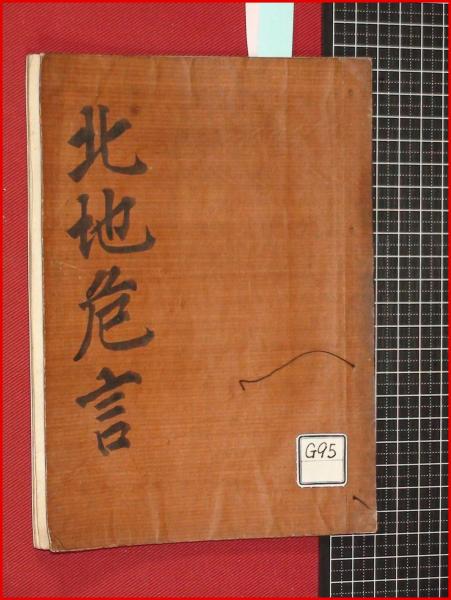 北地危言
G95